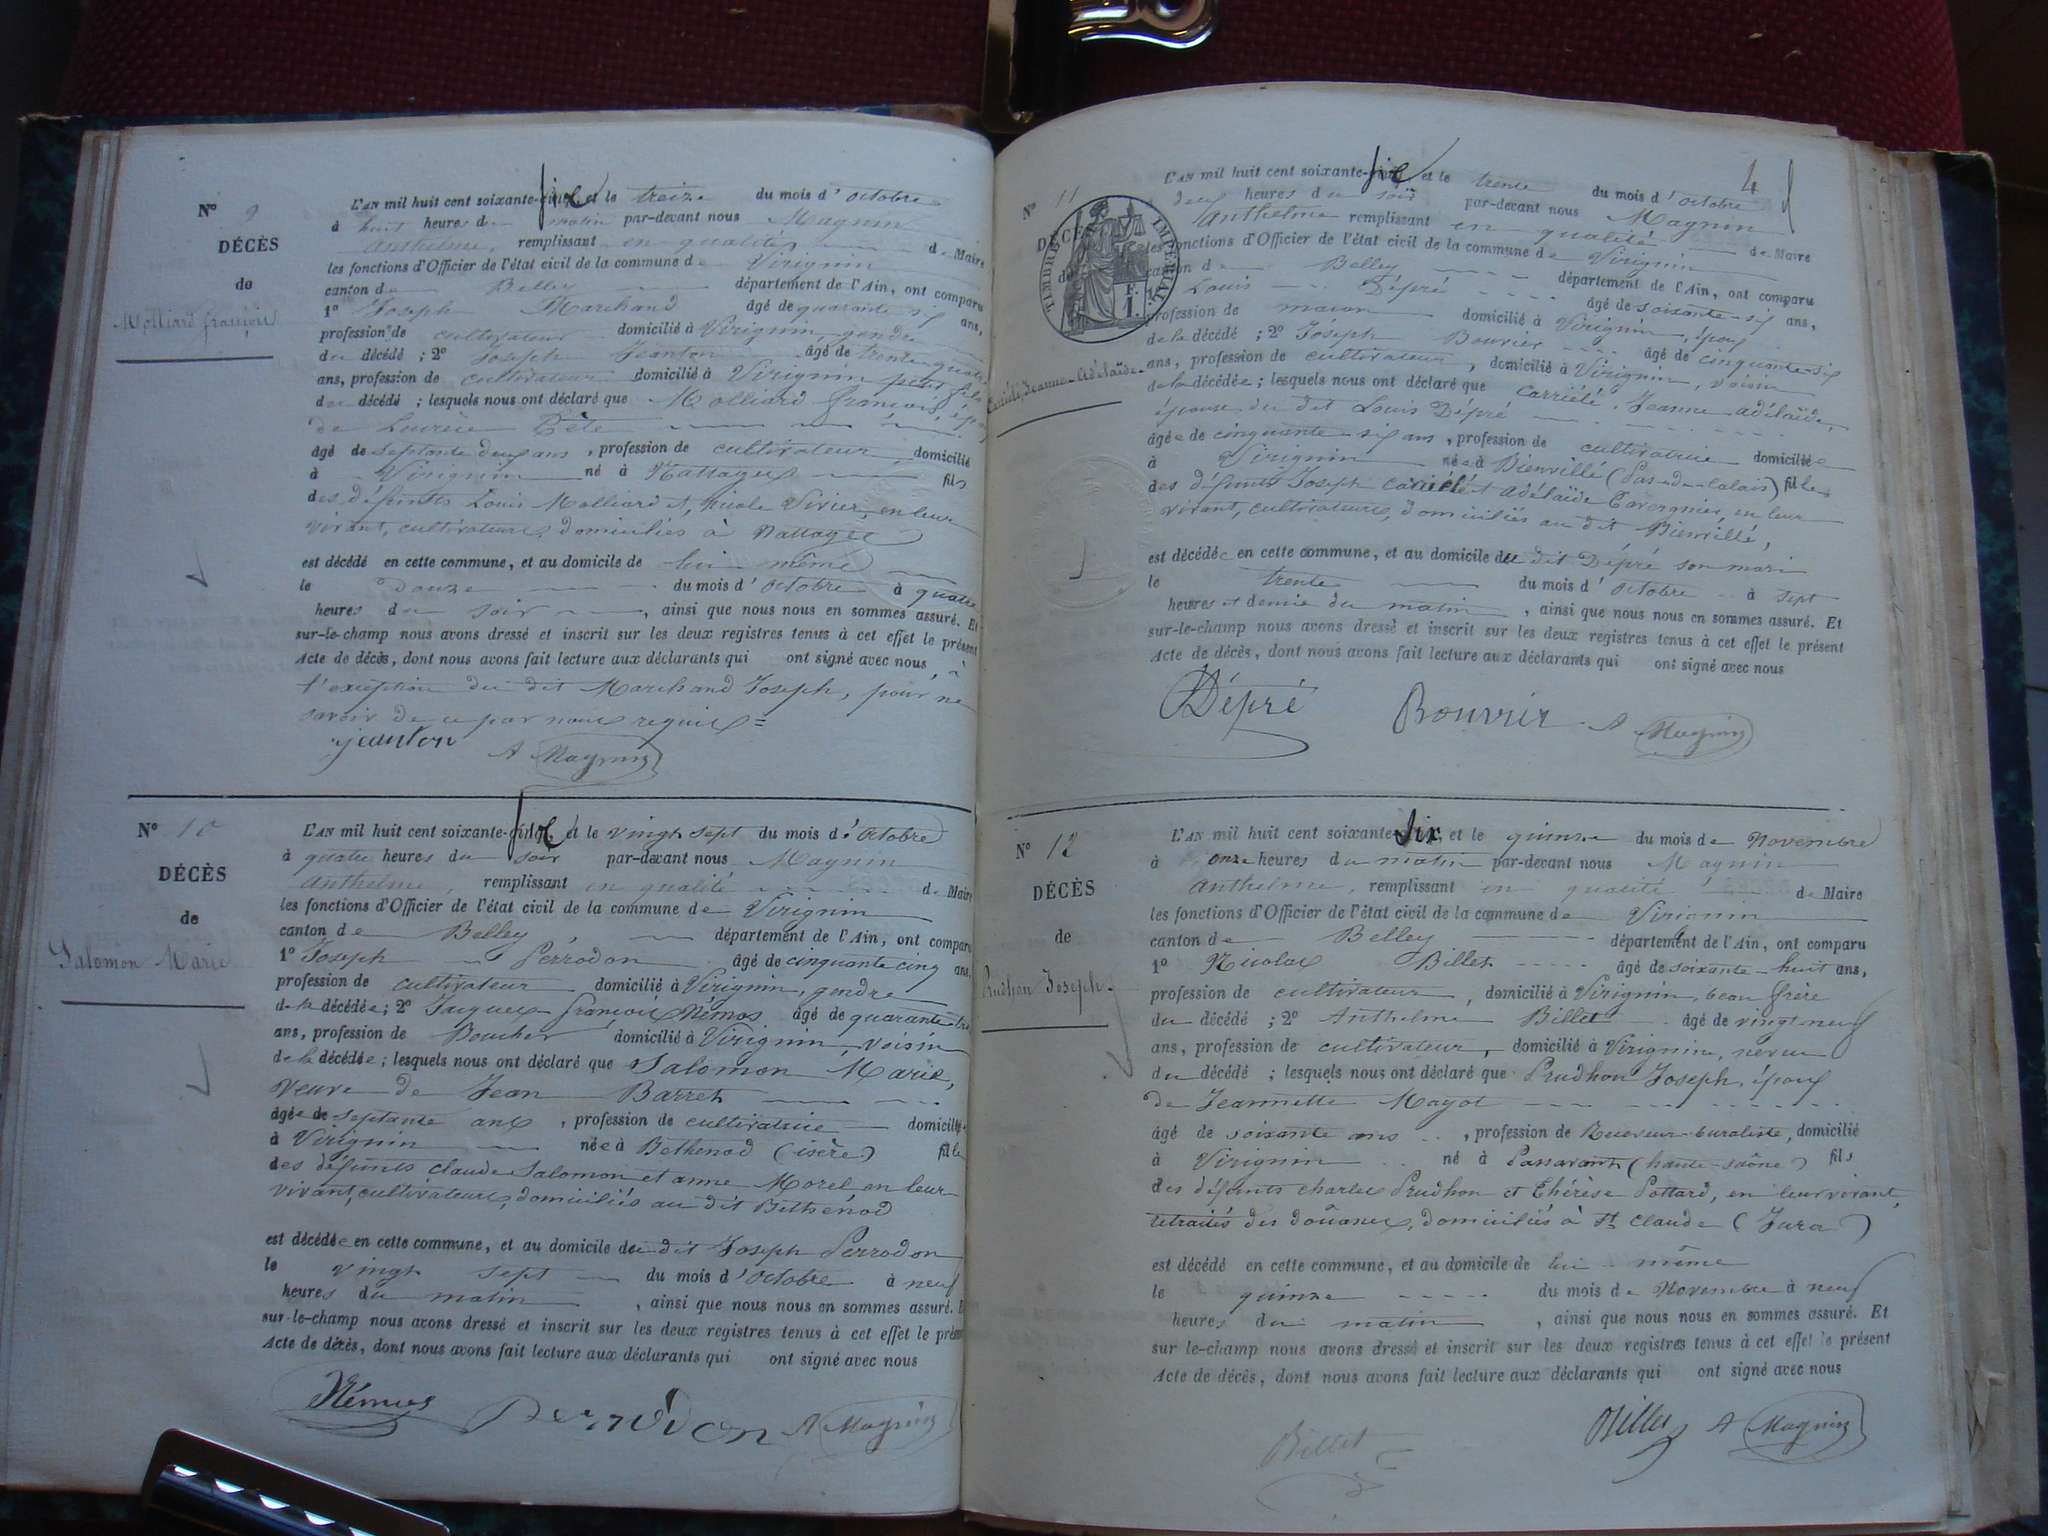 N° 9
DÉCÈS
de
Molliard françois
L'AN mil huit cent soixante-six et le treize du mois d'octobre
à huit heures du matin par-devant nous Magnin
Anthelme, remplissant en qualité de Maire
les fonctions d'Officier de l'état civil de la commune de Virignin
canton de Belley département de l'Ain, ont comparu
1° Joseph Marchand âgé de quarante six ans,
profession de cultivateur domicilié à Virignin, gendre
du décédé ; 2° Joseph Jeanton âgé de trente quatre
ans, profession de cultivateur domicilié à Virignin petit fils
du décédé ; lesquels nous ont déclaré que Molliard françois, époux
de
âgé de septante deux ans, profession de cultivateur domicilié
à Virignin né à Nattages fils
des défunts Louis Molliard et, nicole Vivier, en leur
vivant, cultivateurs, domiciliés à Nattages
est décédé en cette commune, et au domicile de lui même
le douze du mois d'octobre à quatre
heures du soir, ainsi que nous nous en sommes assuré. Et
sur-le-champ nous avons dressé et inscrit sur les deux registres tenus à cet effet le présent
Acte de décès, dont nous avons fait lecture aux déclarants qui ont signé avec nous à
l'exception du dit Marchand Joseph, pour ne
savoir de ce par nous requis =
jeanton A Magnin
N° 10
DÉCÈS
de
Salomon Marie
L'AN mil huit cent soixante-six et le vingt sept du mois d'octobre
à quatre heures du soir par-devant nous Magnin
Anthelme, remplissant en qualité de Maire
les fonctions d'Officier de l'état civil de la commune de Virignin
canton de Belley département de l'Ain, ont comparu
1° Joseph Perrodon âgé de cinquante cinq ans,
profession de cultivateur domicilié à Virignin, gendre
de la décédée; 2° Jacques françois Némos âgé de quarante trois
ans, profession de Boucher domicilié à Virignin, voisin
de la décédée; lesquels nous ont déclaré que Salomon Marie,
veuve de Jean Barret
âgée de septante ans, profession de cultivatrice domiciliée
à Virignin née à Bethenod (isère) fille
des défunts claude Salomon et anne Morel en leur
vivant, cultivateurs, domiciliés au dit Bethénod
est décédée en cette commune, et au domicile du dit Joseph Perrodon
le vingt sept du mois d'octobre à neuf
heures du matin, ainsi que nous nous en sommes assuré. Et
sur-le-champ nous avons dressé et inscrit sur les deux registres tenus à cet effet le présent
Acte de décès, dont nous avons fait lecture aux déclarants qui ont signé avec nous
Némos Perrodon A Magnin
4
N° 11
DÉCÈS
de
TIMBRE IMPÉRIAL
1 F.
Carriélé Jeanne-Adélaïde
L'AN mil huit cent soixante-six et le trente du mois d'octobre
deux heures du soir par-devant nous Magnin
Anthelme remplissant en qualité de Maire
les fonctions d'Officier de l'état civil de la commune de Virignin
canton de Belley département de l'Ain, ont comparu
Louis Dépré âgé de soixante-six ans,
profession de maçon domicilié à Virignin, époux
de la décédé ; 2° Joseph Bouvier âgé de cinquante-six
ans, profession de cultivateur, domicilié à Virignin, voisin
de la décédée; lesquels nous ont déclaré que Carriélé, Jeanne Adélaïde,
épouse du dit Louis Dépré
âgée de cinquante-six ans, profession de cultivatrice domiciliée
à Virignin née à Bienvillé (Pas-de-Calais) fille
des défunts Joseph Carriélé et Adélaïde Tavergnier, en leur
vivant, cultivateurs, domiciliés au dit Bienvillé,
est décédée en cette commune, et au domicile du dit Dépré son mari
le trente du mois d'octobre à sept
heures et demie du matin, ainsi que nous nous en sommes assuré. Et
sur-le-champ nous avons dressé et inscrit sur les deux registres tenus à cet effet le présent
Acte de décès, dont nous avons fait lecture aux déclarants qui ont signé avec nous
Dépré Bouvier A Magnin
N° 12
DÉCÈS
de
Prudhon Joseph
L'AN mil huit cent soixante-six, et le quinze du mois de Novembre
à onze heures du matin par-devant nous Magnin
Anthelme, remplissant en qualité de Maire
les fonctions d'Officier de l'état civil de la commune de Virignin
canton de Belley département de l'Ain, ont comparu
1° Nicolas Billet âgé de soixante-huit ans,
profession de cultivateur, domicilié à Virignin, beau frère
du décédé ; 2° Anthelme Billet âgé de vingt-neuf
ans, profession de cultivateur, domicilié à Virignin, neveu
du décédé ; lesquels nous ont déclaré que Prudhon Joseph, époux
de Jeannette Mayot
âgé de soixante ans, profession de Receveur-buraliste, domicilié
à Virignin né à Passavant (haute-saône) fils
des défunts charles Prudhon et Thérèse Pottard, en leur vivant,
retraités des douanes, domiciliés à St claude (Jura)
est décédé en cette commune, et au domicile de lui même
le quinze du mois de Novembre à neuf
heures du matin, ainsi que nous nous en sommes assuré. Et
sur-le-champ nous avons dressé et inscrit sur les deux registres tenus à cet effet le présent
Acte de décès, dont nous avons fait lecture aux déclarants qui ont signé avec nous
Billet Billet A Magnin